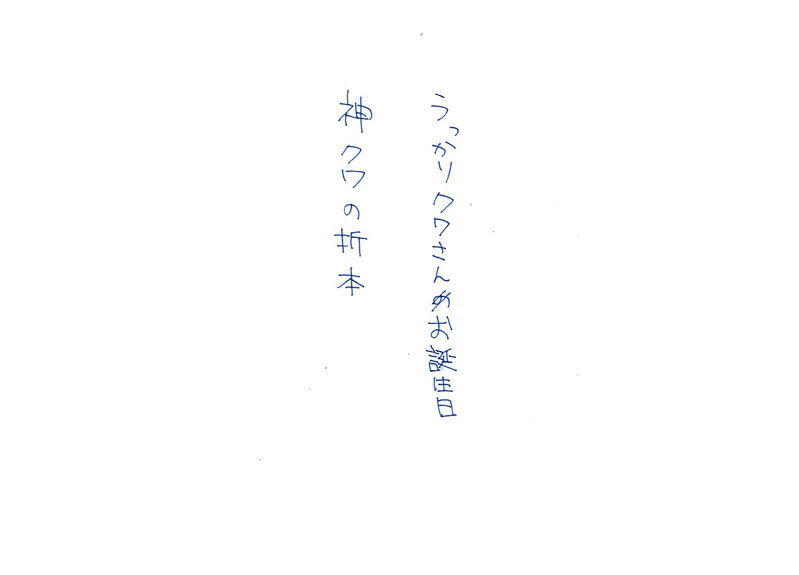 うっかりクワさんのお誕生日
神クワの折本